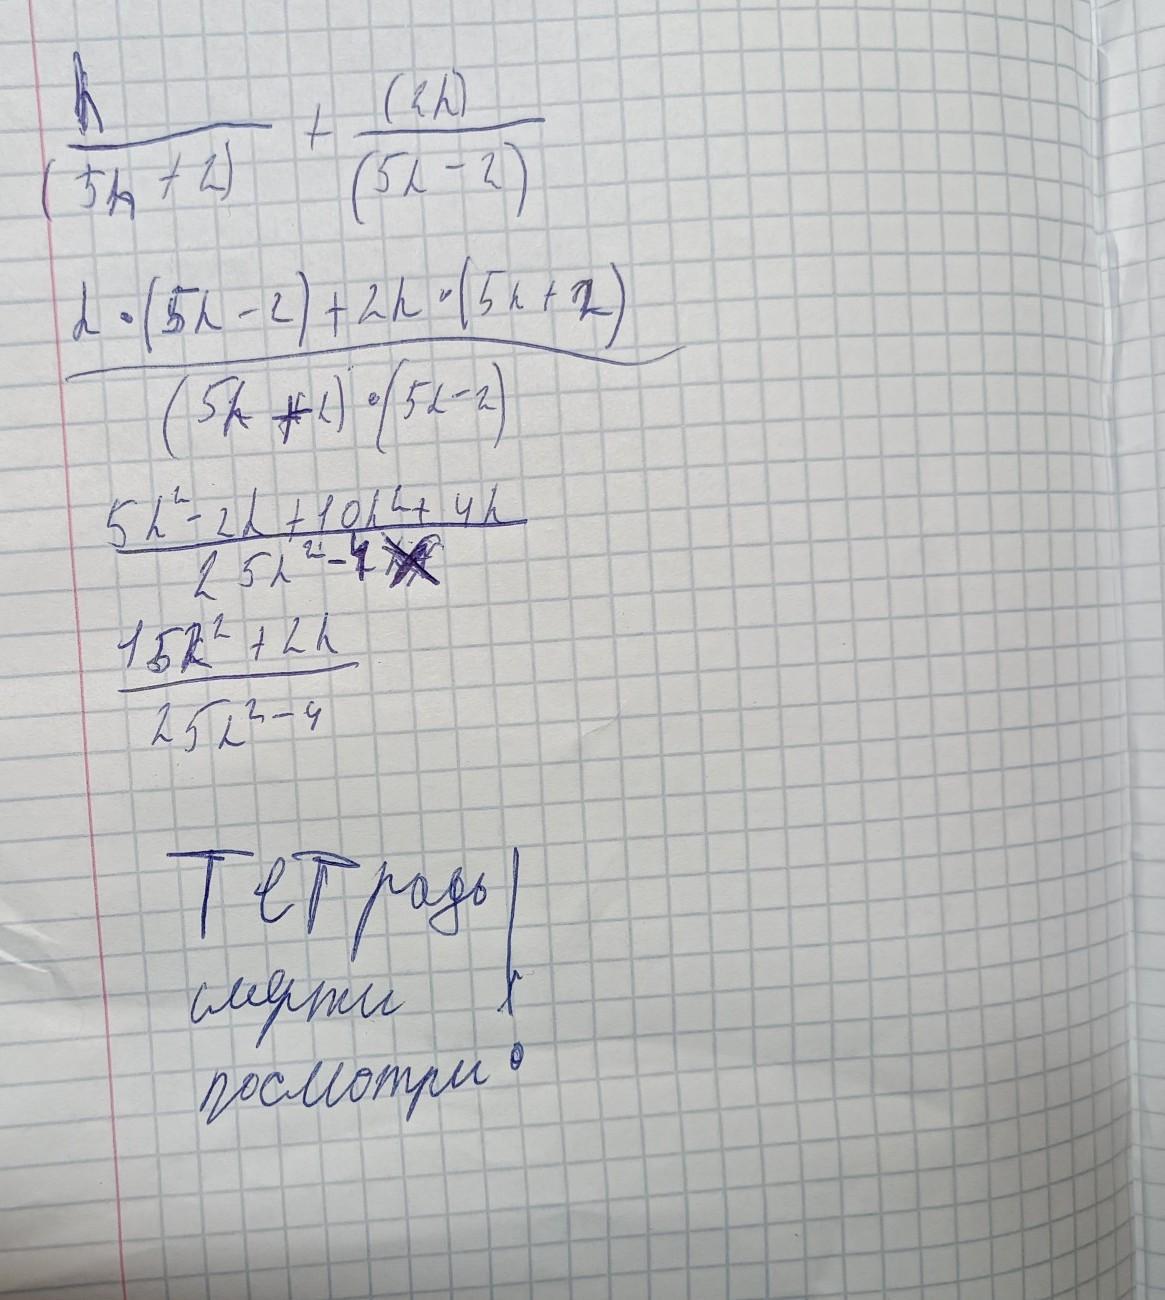 h/(5h + 2) + (2h)/(5h - 2)
h · (5h - 2) + 2h · (5h + 2)
(5h + 2) · (5h - 2)
5h² - 2h + 10h² + 4h
25h² - 4
15h² + 2h
25h² - 4
Тетрадь
смерти
посмотри!